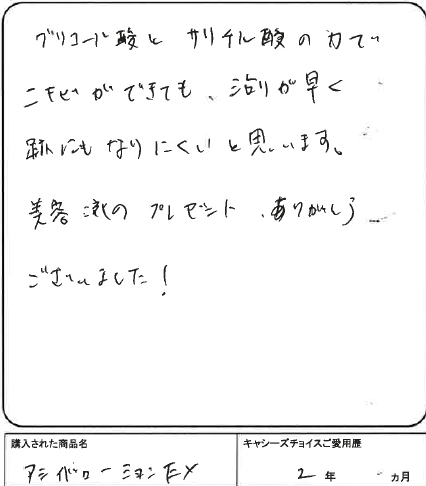 グリコール酸と サリチル酸の力で
ニキビができても、治りが早く
跡にもなりにくいと思います。
美容液の プレゼント、ありがとう
ございました！
購入された商品名
キャシーズチョイスご愛用歴
ローションEX
2 年 カ月